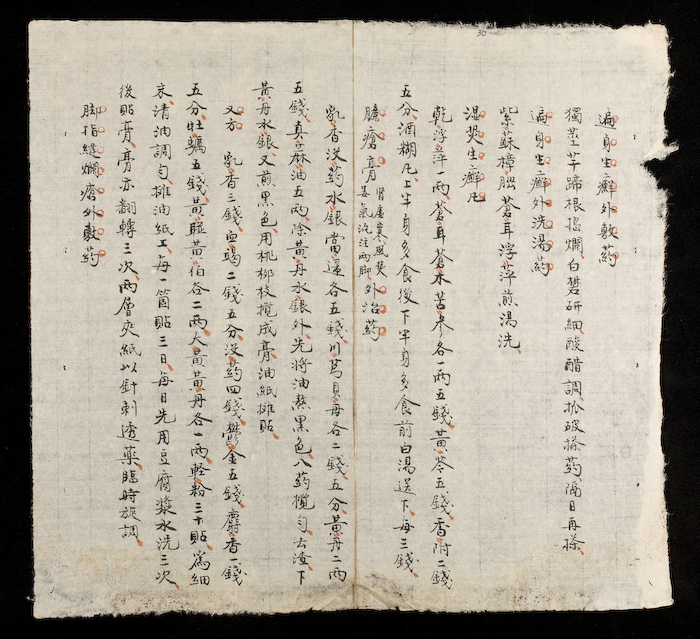 30
遍身生癬外敷药
獨茎羊蹄根搗爛白礬研細酸醋調抓破搽药隔日再搽
遍身生癬外洗湯药
紫蘇樟腦蒼耳浮萍煎湯洗
湿熨生癬凡
乾浮萍一兩蒼耳蒼术苦参各一兩五錢黄芩五錢香附二錢
五分酒糊凡上半身多食後下半身多食前白湯送下每三錢
臁瘡膏 腎虚寒風熨 湿氣流注两脚 外治药
乳香没药水銀當退各五錢川芎貝母各二錢五分黄丹二兩
五錢真麻油五兩除黄丹水銀外先將油熬黑色入药攪匀去渣下
黄丹水銀又煎黑色用桃柳枝攪成膏油紙攤貼
又方 乳香三錢血竭二錢五分没药四錢鬱金五錢麝香一錢
五分牡蠣五錢黄蠟黄伯各二兩大黄黄丹各一兩輕粉三十貼為細
末清油調匀攤油紙上每一箇貼三日每日先用豆腐漿水洗三次
後貼膏膏亦翻轉三次兩層夾紙以針刺透藥臨時旋調
脚指縫爛瘡外敷药